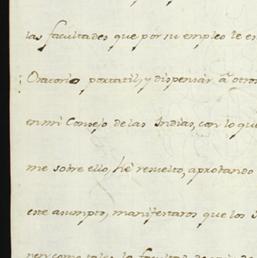 las facultades que por su empleo le es
Oratorio portatil, y dispensar a otros
en mi Consejo de las Indias, con lo que
me sobre ello, hé resuelto, aprobando
este asumpto, manifestaros que los